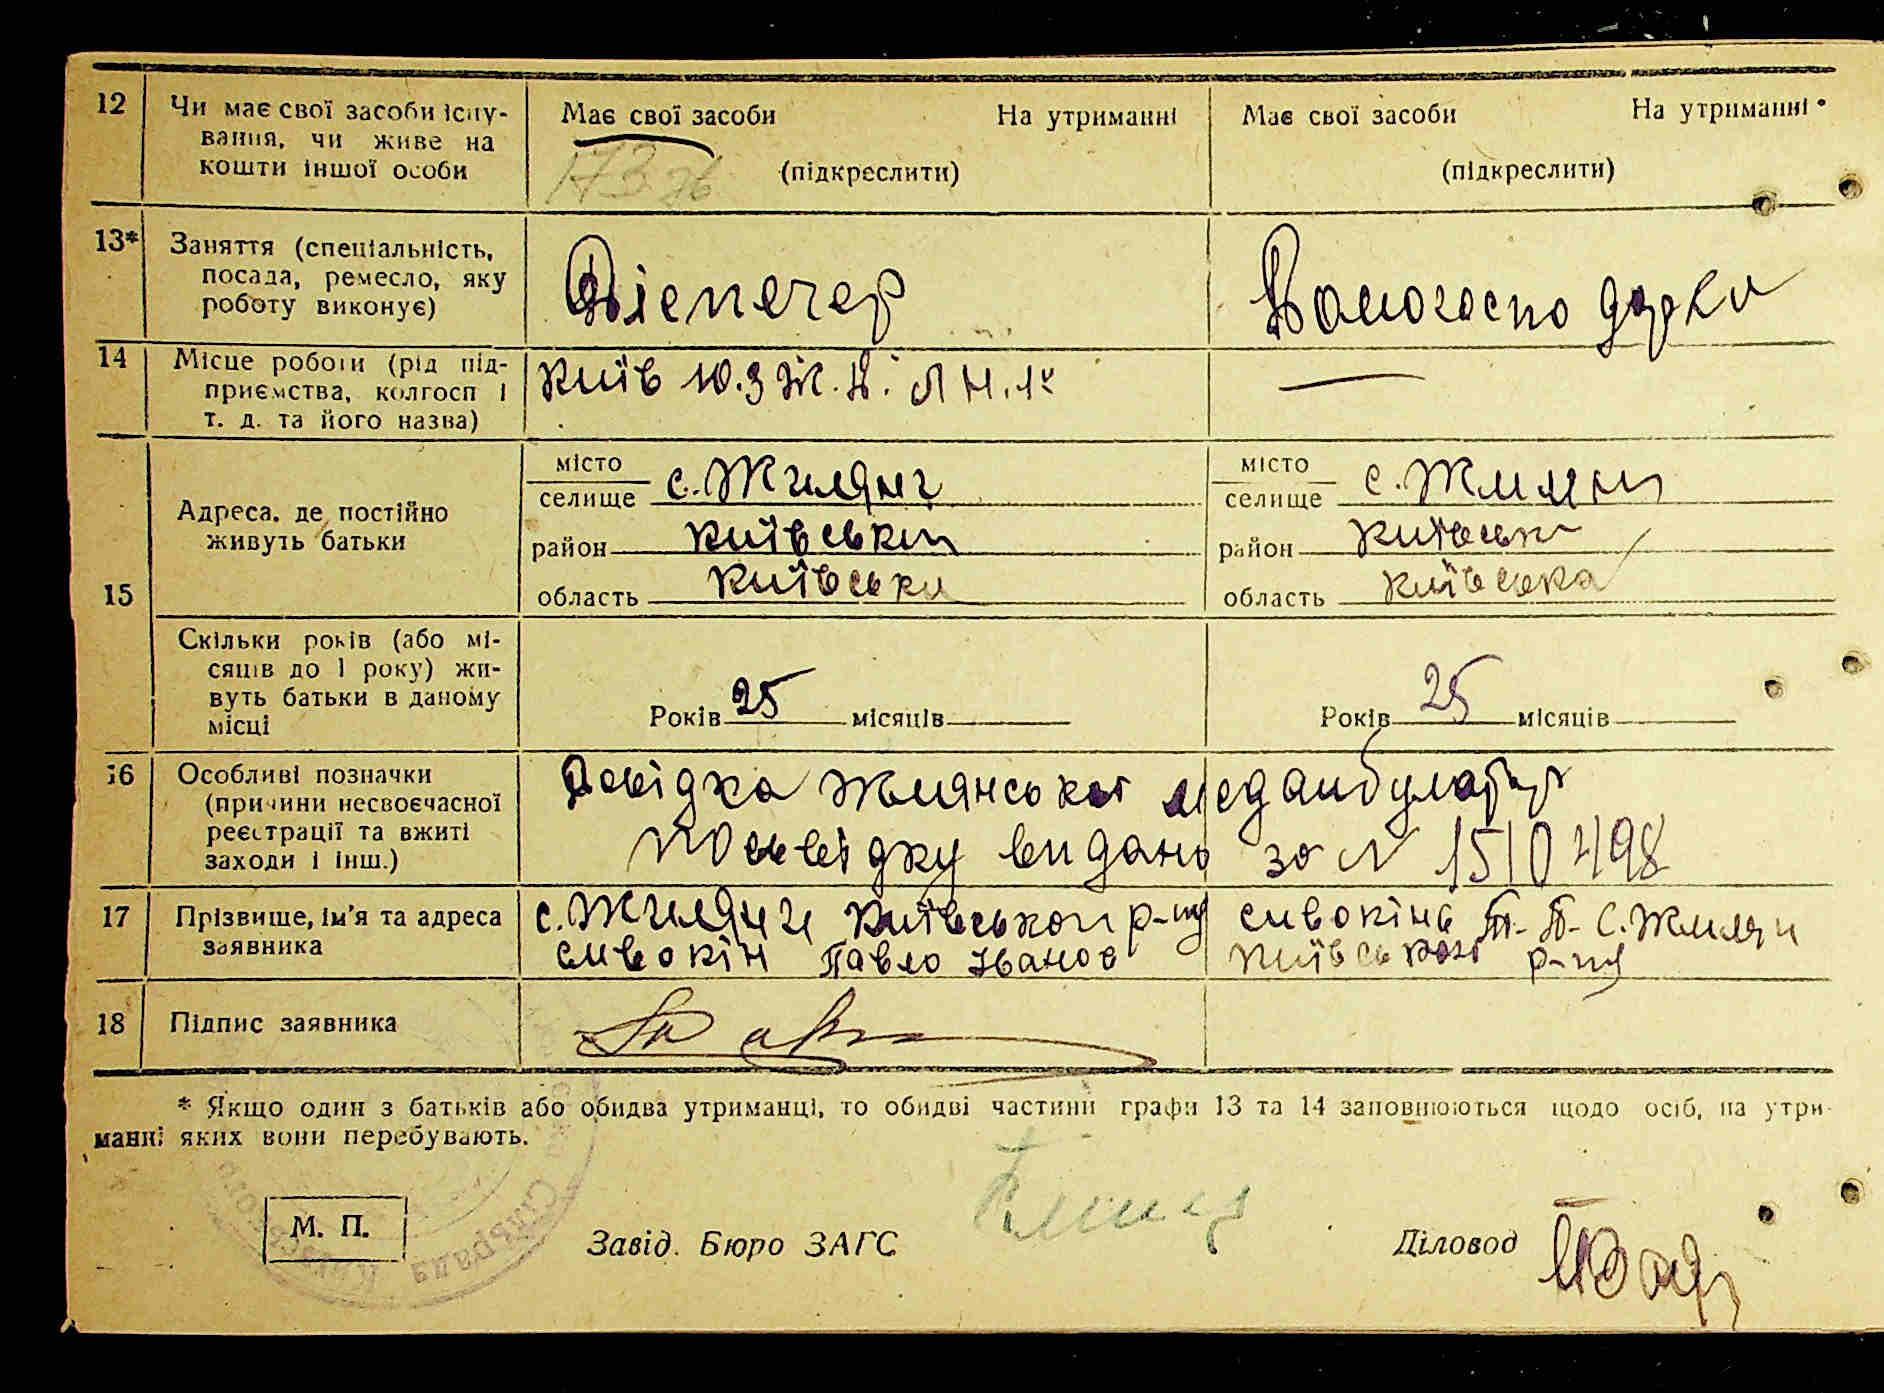 12 Чи має свої засоби існу- Має свої засоби На утриманні Має свої засоби На утриманні
вання, чи живе на
кошти іншої особи (підкреслити) (підкреслити)
13* Заняття (спеціальність,
посада, ремесло, яку
роботу виконує) Діспечер Домогосподарки
14 Місце роботи (рід під- Київ Ю.З Ж.Д.
приємства, колгосп і —
т. д. та його назва)
15 Адреса, де постійно
живуть батьки
місто
селище с. Жиляни місто
селище с. Жиляни
район Київськи район Київськ
область Київськи область Київська
Скільки років (або мі-
сяців до 1 року) жи-
вуть батьки в даному
місці
Років 25 місяців Років 25 місяців
16 Особливі позначки Довідка Жилянської медамбулаторії
(причини несвоєчасної
реєстрації та вжиті посвідку видано за N 1510498
заходи і інш.)
17 Прізвище, ім'я та адреса с. Жиляни Київського р-ну Сивокінь с. Жиляни
заявника Сивокін Павло Іванов Київського р-ну
18 Підпис заявника
* Якщо один з батьків або обидва утриманці, то обидві частини графи 13 та 14 заповнюються щодо осіб, на утри-
манні яких вони перебувають.
М. П.
Завід. Бюро ЗАГС Діловод